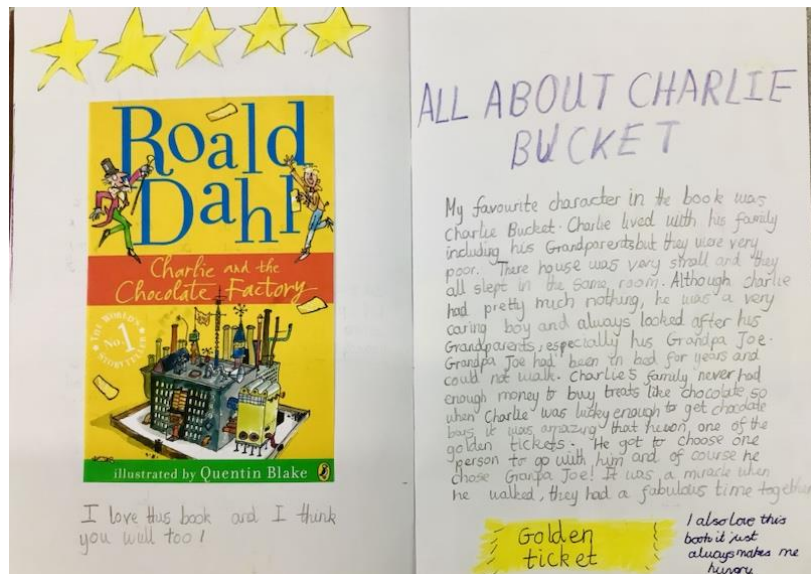 Roald
Dahl
Charlie and the
Chocolate Factory
THE WORLD'S
No. 1
STORYTELLER
illustrated by Quentin Blake
I love this book and I think
you will too!
ALL ABOUT CHARLIE
BUCKET
My favourite character in the book was
Charlie Bucket. Charlie lived with his family
including his Grandparents but they were very
poor. There house was very small and they
all slept in the same room. Although charlie
had pretty much nothing, he was a very
caring boy and always looked after his
Grandparents, especially his Grandpa Joe.
Grandpa Joe had been in bed for years and
could not walk. Charlie's family never had
enough money to buy treats like chocolate so
when Charlie was lucky enough to get chocolate
bars it was amazing that he won, one of the
golden tickets. He got to choose one
person to go with him and of course he
chose Granpa Joe! It was a miracle when
he walked, they had a fabulous time together
Golden
ticket
I also love this
book it just
always makes me
hungry